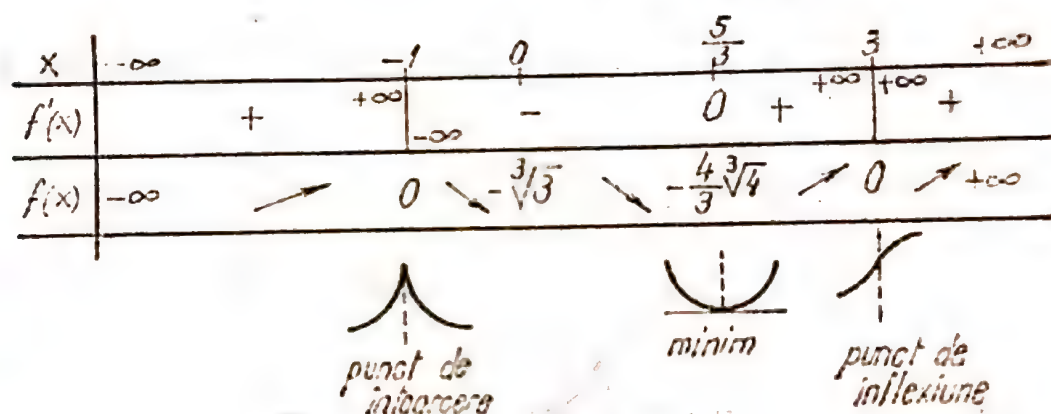 x -∞ -1 0 5/3 3 +∞
f'(x) + +∞ -∞ - 0 + +∞ +∞ +
f(x) -∞ ↗ 0 ↘ -∛3 ↘ -4/3 ∛4 ↗ 0 ↗ +∞
punct de
intoarcere
minim
punct de
inflexiune